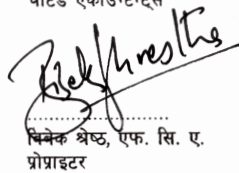 चार्टर्ड एकाउन्टेन्ट्स
Bibek Shrestha
..............................
बिबेक श्रेष्ठ, एफ. सि. ए.
प्रोप्राइटर